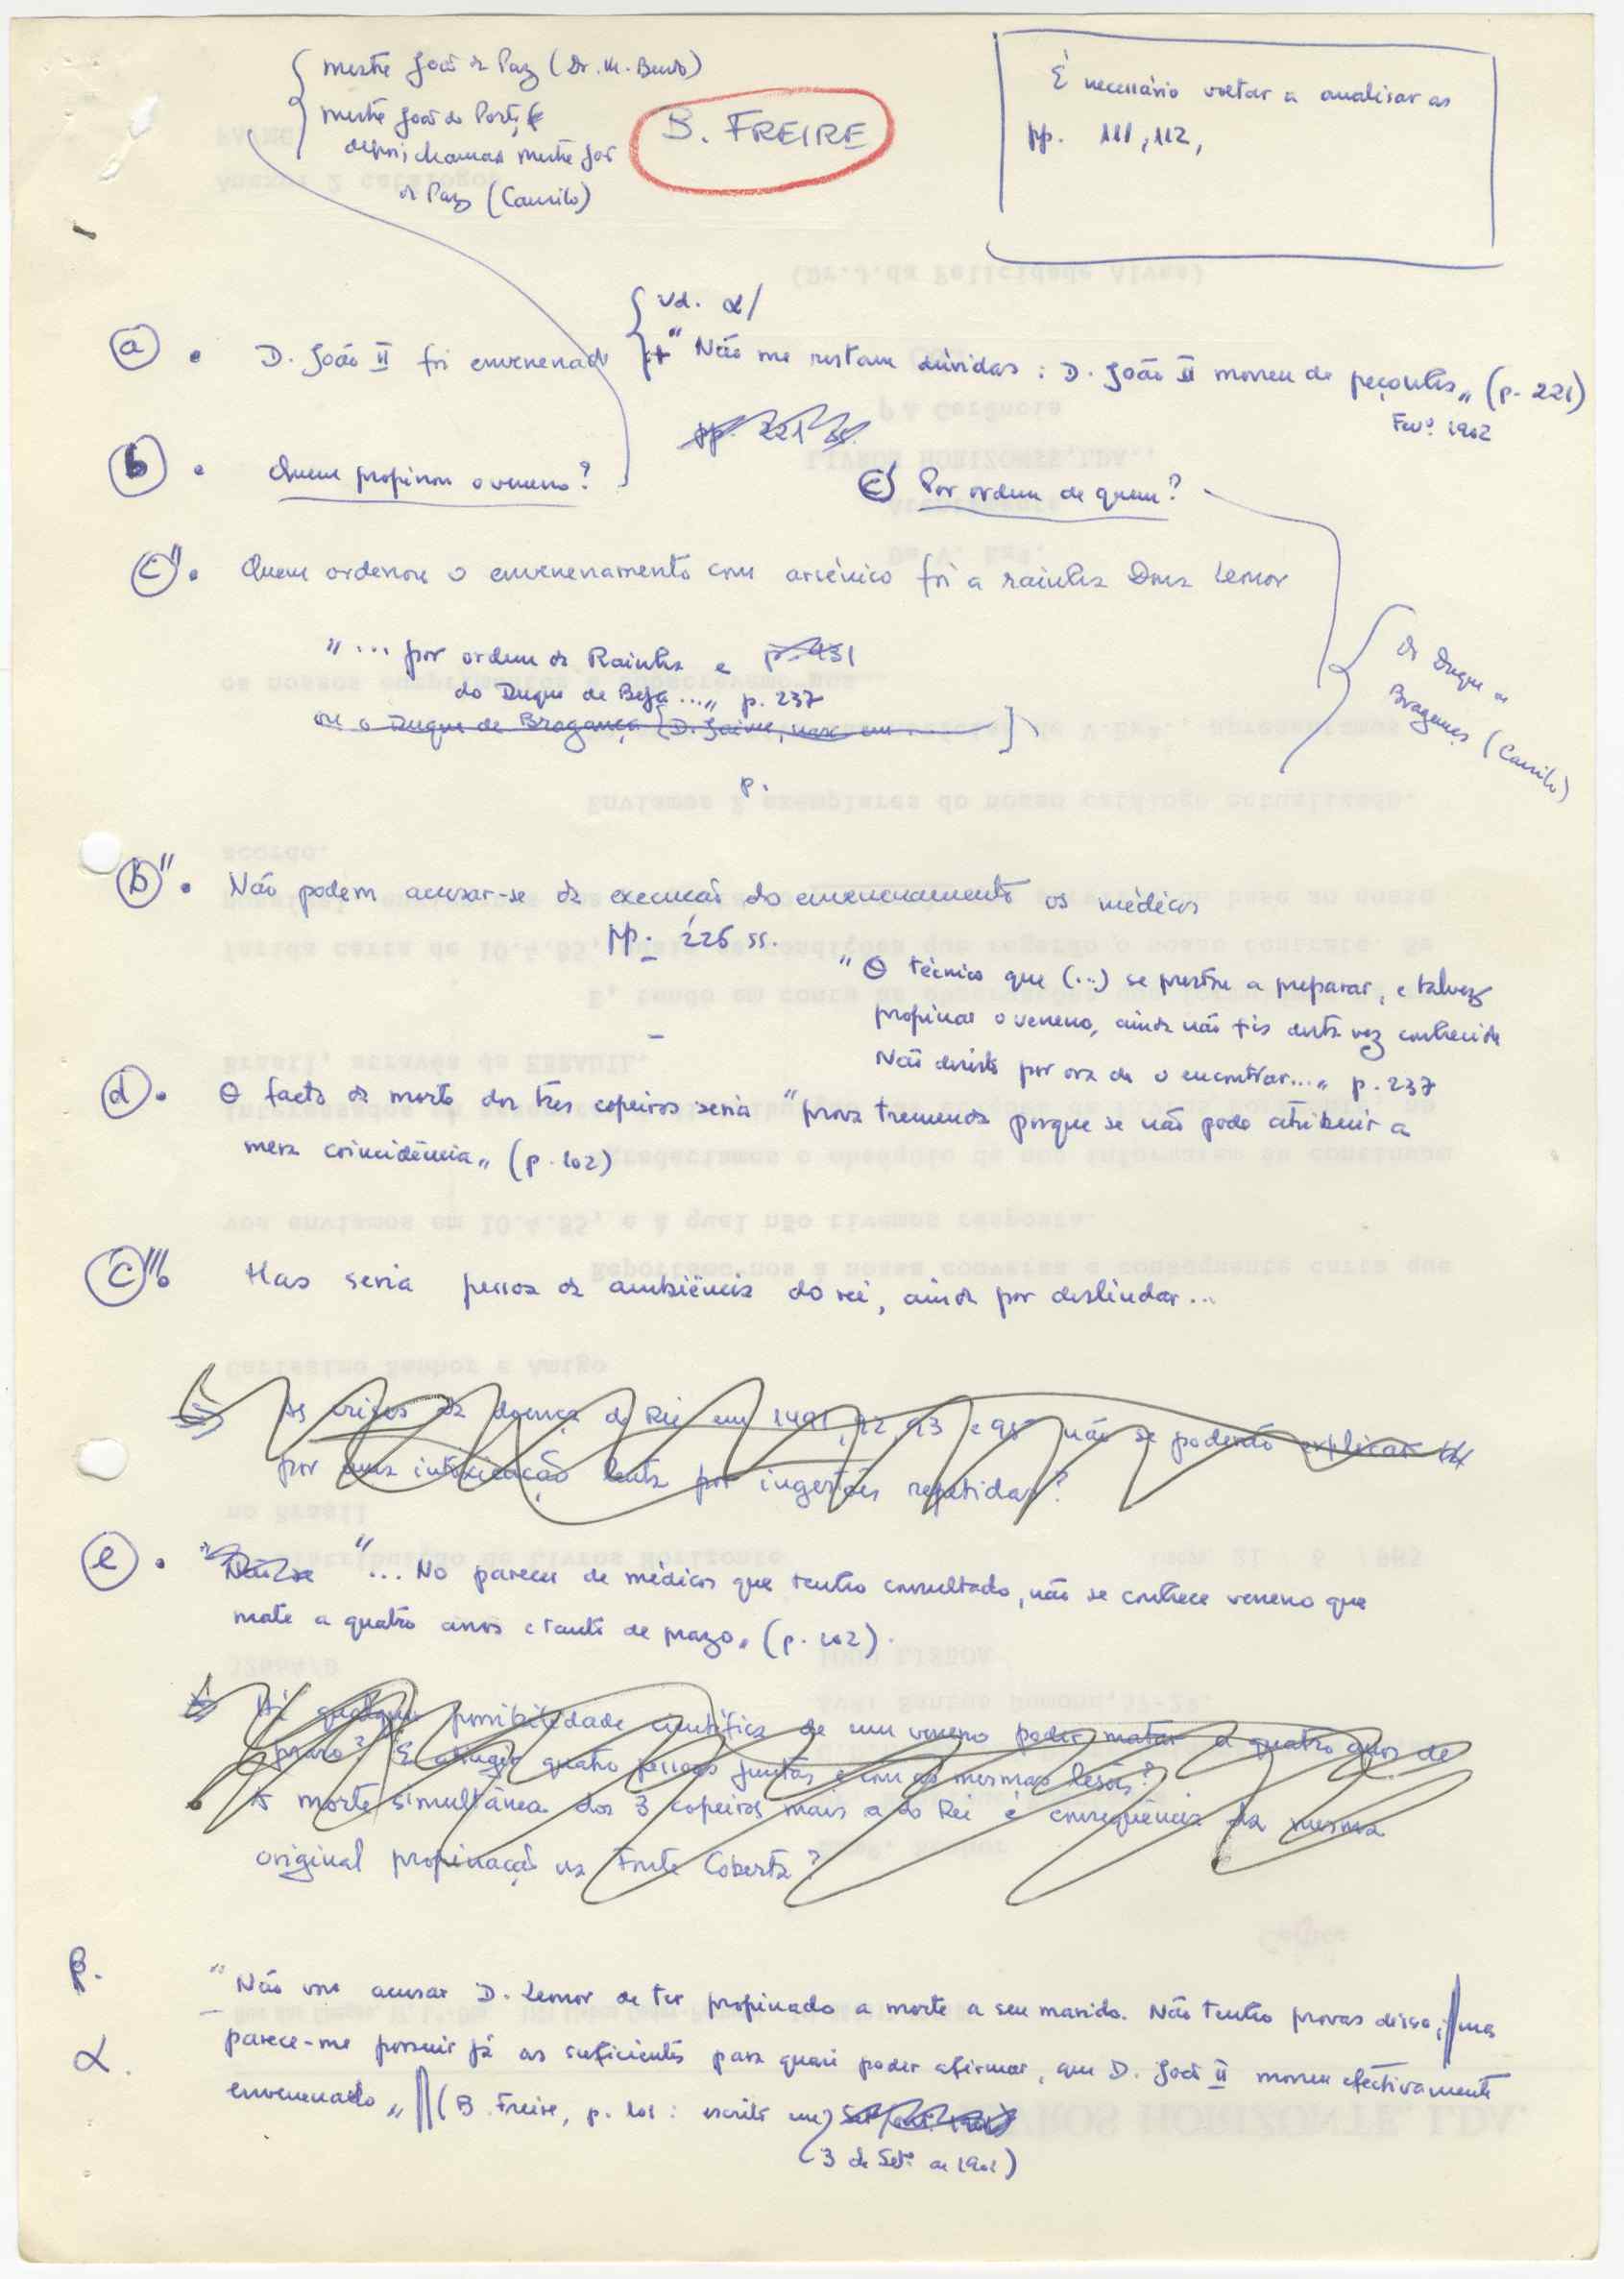 mestre João da Paz (Dr. M. Bento)
mestre João de Portugal
depois chamado mestre João
da Paz (Camilo)
B. FREIRE
É necessário voltar a analisar as
pp. 111, 112,
vd. α/
a • D. João II foi envenenado + "Não me restam dúvidas: D. João II morreu de peçonha" (p. 221)
Fevº 1902
pp. 221 ss.
b • Quem propinou o veneno?
c' Por ordem de quem?
c" • Quem ordenou o envenenamento com arsénico foi a rainha Dona Leonor
"... por ordem da Rainha e p. 431
do Duque de Beja ..." p. 237
ou o Duque de Bragança [D. Jaime, nasc. em ]
p.
O Duque de
Bragança (Camilo)
b" • Não podem acusar-se da execução do envenenamento os médicos
pp. 226 ss.
"O técnico que (...) se prestou a preparar, e talvez
propinar o veneno, ainda não fis desta vez conhecido
Não desisto por ora de o encontrar..." p. 237
d • O facto da morte dos três copeiros seria "prova tremenda porque se não pode atribuir a
mera coincidência" (p. 102)
c''' • Mas seria pessoa da ambiência do rei, ainda por deslindar...
As crises da doença do Rei em 1491, 92, 93 e 95 não se poderão explicar
por uma intoxicação lenta por ingestões repetidas?
e • Não se "... No parecer de médicos que tenho consultado, não se conhece veneno que
mate a quatro anos e tanto de prazo" (p. 102).
Há qualquer possibilidade científica de um veneno poder matar a quatro anos de
prazo? E atingir quatro pessoas juntas e com as mesmas lesões?
• A morte simultânea dos 3 copeiros mais a do Rei é consequência da mesma
original propinação na Fonte Coberta?
β. "Não vou acusar D. Leonor de ter propinado a morte a seu marido. Não tenho provas disso, || mas
α. parece-me possuir já as suficientes para quasi poder afirmar, que D. João II morreu efectivamente
envenenado" || (B. Freire, p. 101: escrito em)
(3 de Setº de 1901)